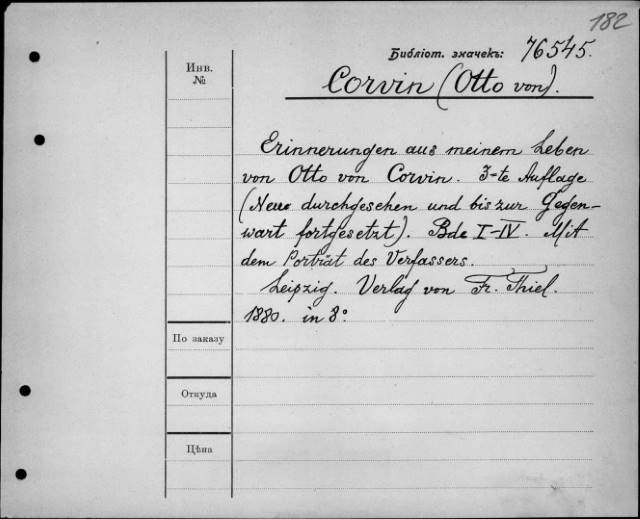 182
Библіот. значекъ: 76545.
Инв.
№
Corvin (Otto von).
Erinnerungen aus meinem Leben
von Otto von Corvin. 3-te Auflage
(Neu durchgesehen und bis zur Gegen-
wart fortgesetzt). Bde I-IV. Mit
dem Porträt des Verfassers.
Leipzig. Verlag von Fr. Thiel.
1880. in 8°
По заказу
Откуда
Цѣна